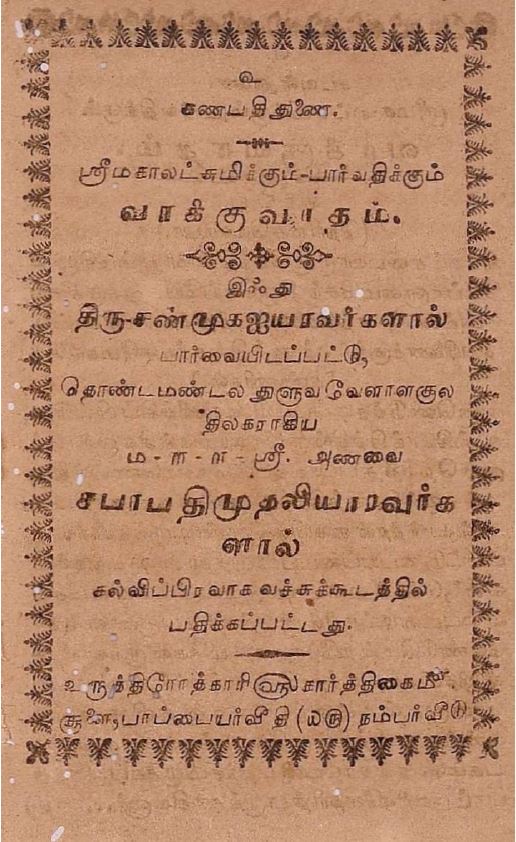 உ
கணபதிதுணை.
ஸ்ரீமகாலட்சுமிக்கும்-பார்வதிக்கும்
வாக்குவாதம்.
இஃது
திரு-சண்முகஐயரவர்களால்
பார்வையிடப்பட்டு,
தொண்டமண்டல துளுவவேளாளகுல
திலகராகிய
ம-ா-ா-ஸ்ரீ. அணவை
சபாபதிமுதலியாரவர்க
ளால்
கல்விப்பிரவாகவச்சுக்கூடத்தில்
பதிக்கப்பட்டது.
உருத்திரோத்காரி௵கார்த்திகை௴
சூளை, பாப்பையர்வீதி (௰௫) நம்பர்வீடு